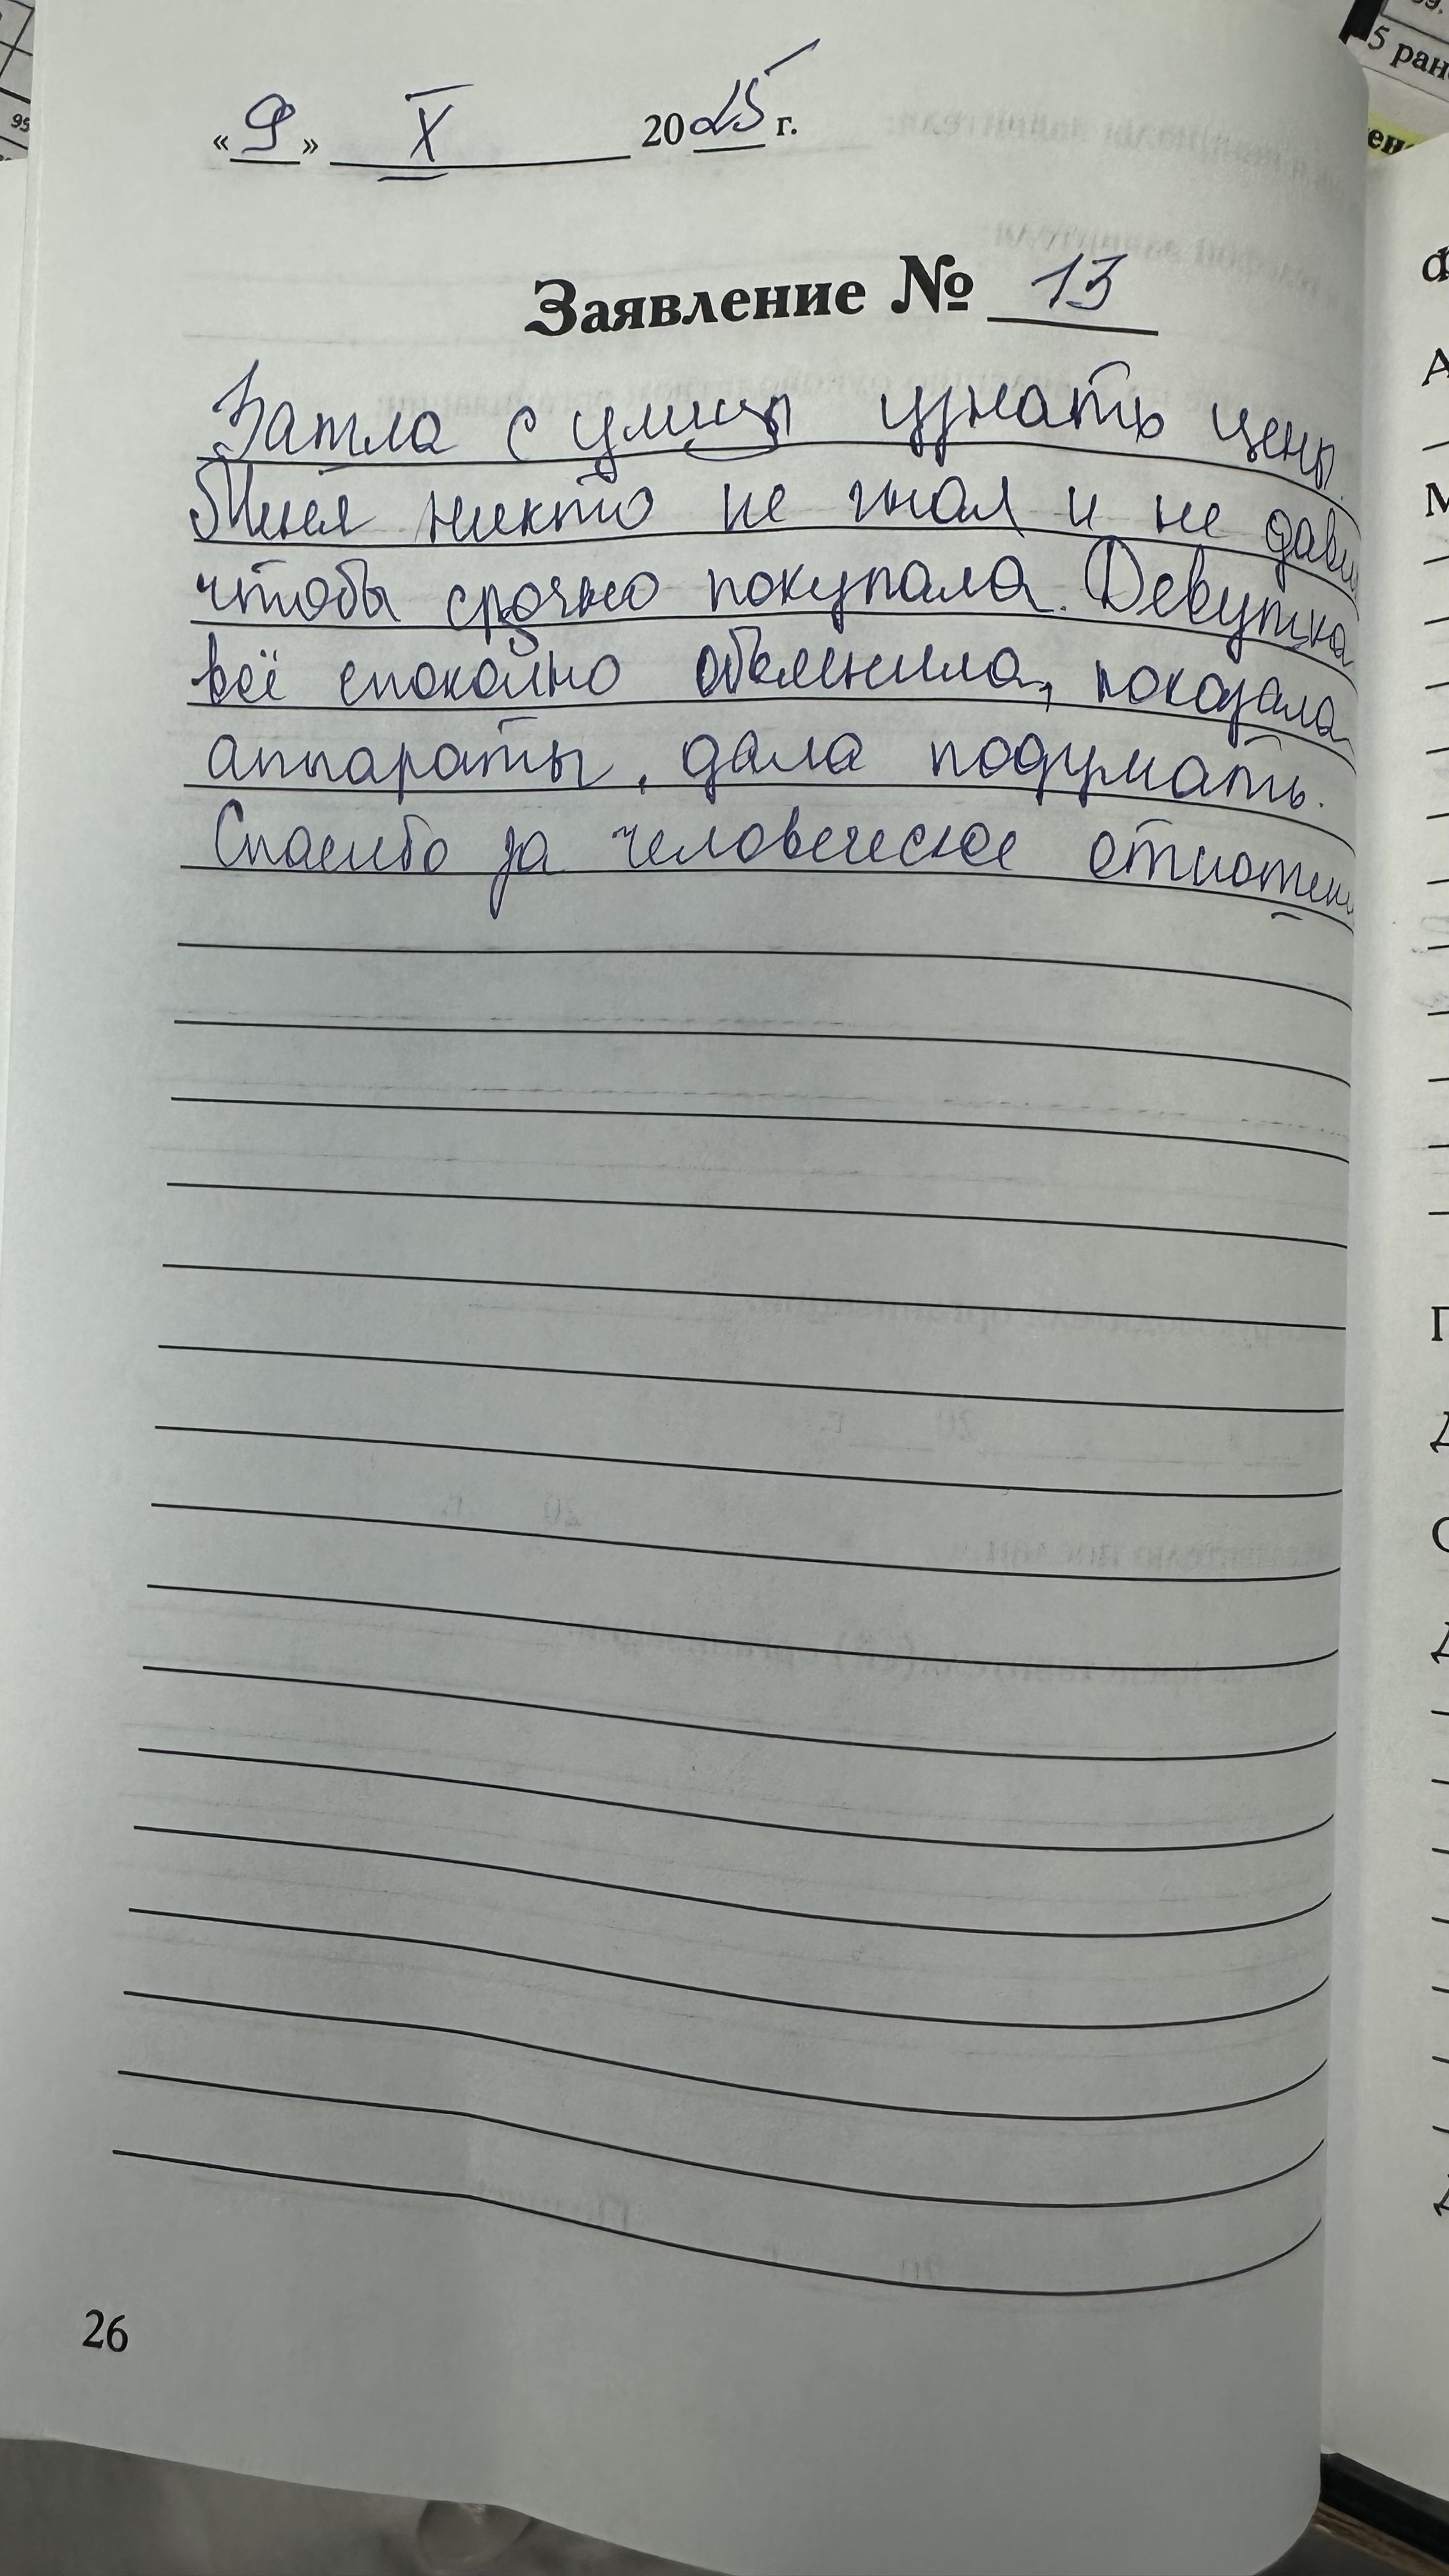 «9» X 2025 г.
Заявление № 13
Зашла с улицы узнать цены.
Меня никто не гнал и не
чтобы срочно покупала. Девушка
всё спокойно объяснила, показала
аппараты, дала подумать.
Спасибо за человеческое
26
5